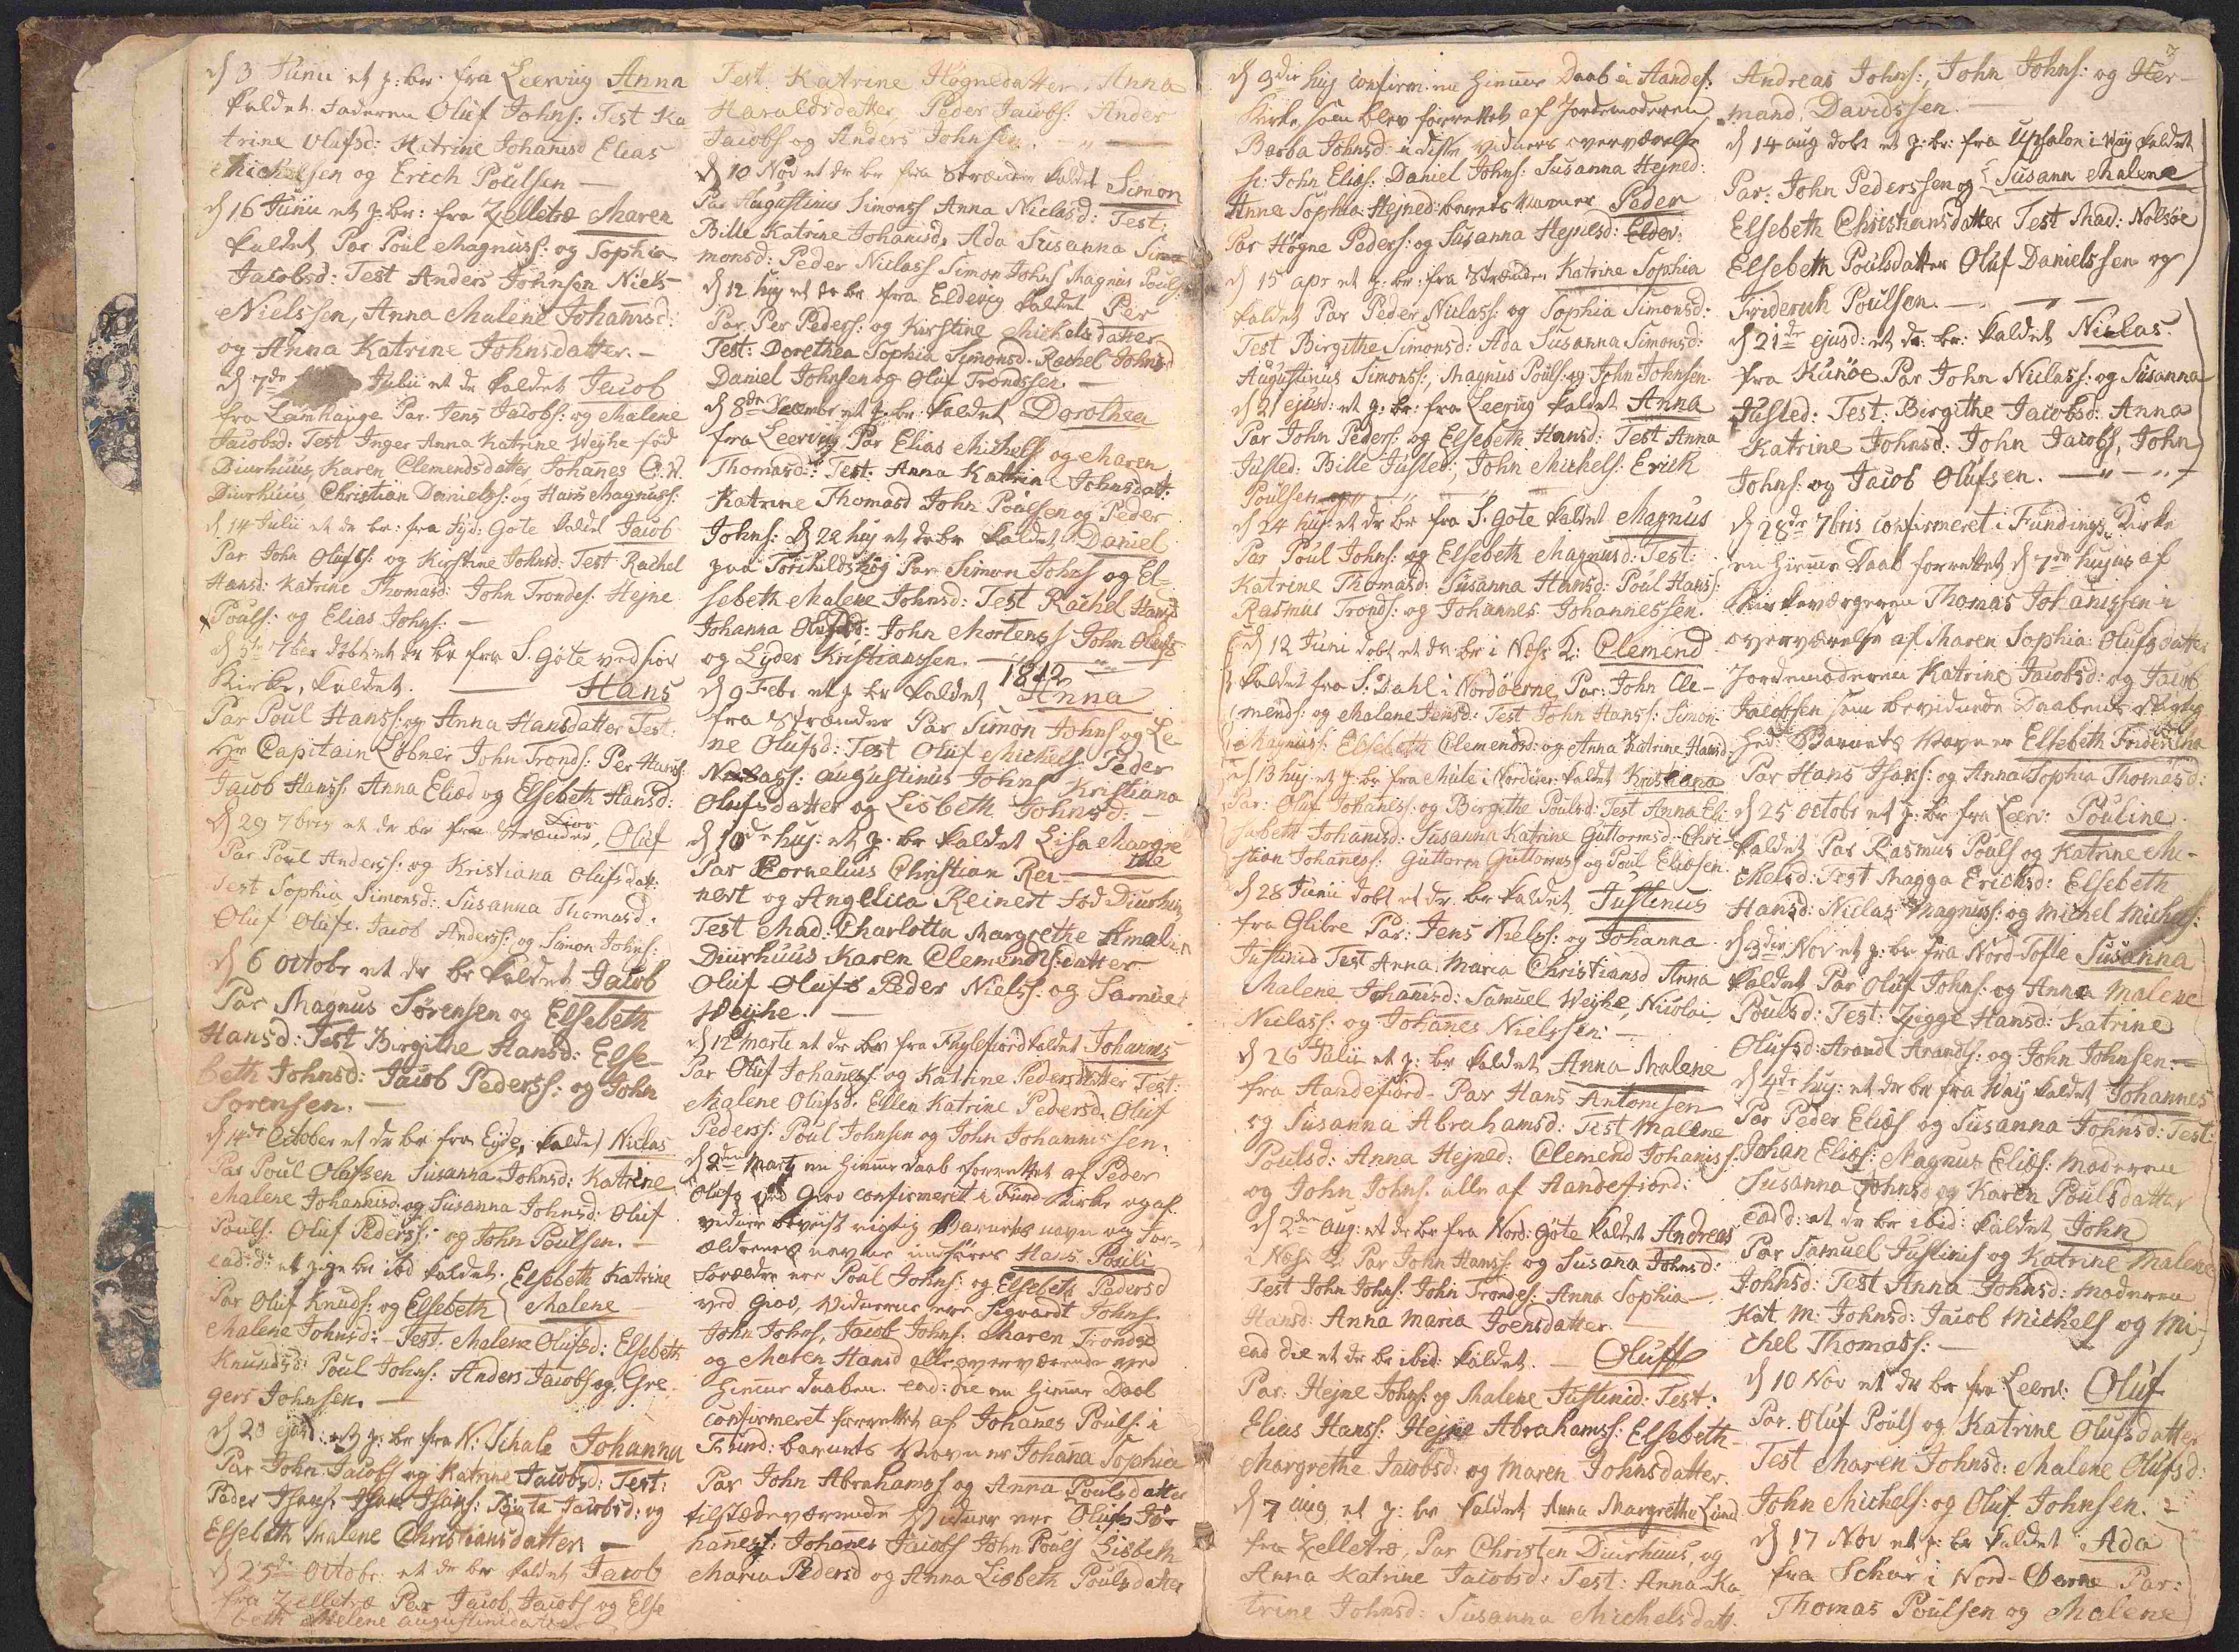 d 3 Junii et p: br. fra Leervug Anna
kaldet. Faderen Oluf Johns: Test Ka
trine Olufsd: Katrine Johanisd Elias
Michelsen og Erich Poulsen —
d 16 Junii et p: br: fra Zelletræ Maren
kaldet Par Poul Magnuss: og Sophia
Jacobsd: Test Anders Johnsen Niels
Nielssen, Anna Malene Johanisd:
og Anna Katrine Johnsdatter. —
d 7de Julii et dr kaldet Jacob
fra Lamhauge Par. Jens Jacobs: og Malene
Jacobsd: Test Inger Anna Katrine Weyhe fød
Diurhuus, Karen Clemendsdatter, Johanes
Diurhuus, Christian Daniels: og Hans Magnuss:
d 14 Julii et dr br: fra Syd: Gote kaldet Jacob
Par John Olufss: og Kirstine Johnsd: Test Rachel
Hansd: Katrine Thomasd: John Trondes: Hejne
Pouls: og Elias Johns: —
7ber døbt et dr br fra S. Gøte ved
Kirke, kaldet. — Hans
Par Poul Hanss: og Anna Hansdatter Test:
Hr Capitain Løbner John Tronds: Per Hanss:
Jacob Hanss: Anna Eliæd og Elsebeth Hansd:
d 29 7bris et dr br fra Strænder, Oluf
Par Poul Anderss: og Kristiana Olufsdat:
Test Sophia Simonsd: Susanna Thomasd:
Oluf Olufs. Jacob Anderss: og Simon Johns:
d 6 Octobr et dr br kaldet Jacob
Par Magnus Sørensen og Elsebeth
Hansd: Test Birgithe Hansd: Else-
beth Johnsd: Jacob Pederss: og John
Sørensen. —
d 14de October et dr br fra Eyde, kaldet Niclas
Par Poul Olufsen Susanna Johnsd: Katrine
Malene Johannisd: og Susanna Johnsd: Oluf
Pouls: Oluf Pederss: og John Poulsen. —
ead: d: et pige br ibd kaldet. Elsebeth Katrine
Par Oluf Knuds: og Elsebeth Malene
Malene Johnsd: — Test. Malene Olufsd: Elsebeth
Knudsd: Poul Johns: Anders Jacobs og Gre
gers Johnsen. —
d 20 ejusd: et p: br fra N: Schale Johanna
Par John Jacobs og Katrine Jacobsd: Test:
Peder Isacs: Isac Isacs: Birte Jacobsd: og
Elsebeth Malene Christiansdatter —
d 25de Octobr: et dr br kaldet Jacob
fra Zelletræ Par Jacob Jacobs og Else
beth Malene Augustinidatter
Test Katrine Høgnedatter, Anna
Haraldsdatter, Peder Jacobs: Ander
Jacobs og Anders Johnsen. —
d 10 Nov et dr br fra Strænder kaldet Simon
Par Augustinus Simonss Anna Niclasd: Test:
Bille Katrine Johanisd, Ada Susanna Simo
monsd: Peder Niclass Simon Johns Magnus Pouls
d 12 huj et dr br fra Eldevig kaldet Per
Par. Per Peders: og Kirstine Michelsdatter
Test: Dorethea Sophia Simonsd. Rachel Johnsd
Daniel Johnsen og Oluf Trondssen. —
d 8de Decembr et p: br: kaldet Dorothea
fra Leervig Par Elias Michels og Maren
Thomasd: Test. Anna Katrine Johnsdatt:
Katrine Thomasd John Poulsen og Peder
Johns: d 22 huj et dr br kaldet Daniel
paa Torkildshøg Par Simon Johns og El-
sebeth Malene Johnsd: Test Rachel Hansd
Johanna Olufsd: John Mortenss John Olufs
og Lyder Kristianssen. —
1812
d 9 Febr et p br kaldet Anna
fra Strænder Par Simon Johns og Le
ne Olufsd: Test Oluf Michels Peder
Niclass: Augustinus Johns Kristiana
Olufsdatter og Lisbeth Johnsd: —
d 10de huj: et p. br kaldet Lisa Margre
the
Par Cornelius Christian Rei
nert og Angelica Reinert fød Diurhuus
Test Mad: Charlotta Margrethe Amalia
Diurhuus Karen Clemendsdatter
Oluf Olufs Peder Nielss: og Samuel
Weyhe. —
d 12 Marti et dr br fra Fuglefiord kaldet Johannes
Par Oluf Johaness: og Katrine Pedersdatter Test:
Malene Olufsd. Ellen Katrine Pedersd. Oluf
Peders: Poul Johnsen og John Johannessen.
d 2den Martj en Hiemme daab forrettet af Peder
Olufs ved Giov confirmeret i Fund Kirke og af
vidner beviist rigtig Barnets navn og For-
ældrenes navne indføres Hans Pouli
Forældre ere Poul Johns: og Elsebeth Pedersd
ved Giov, Vidnerne ere Sigvardt Johns
John Johns, Jacob Johns. Maren Trondsd
og Maren Hansd alle overværende ved
Hiemme daaben. ead: die en Hiemme Daab
confirmeret forrettet af Johanes Pouls: i
Fund: barnets Navn er Johana Sophia
Par John Abrahamss og Anna Poulsdatter
tilstædeværende Vidner ere Olufs Jo-
hanes: Johanes Jacobs John Pouls Lisbeth
Maria Pedersd og Anna Lisbeth Poulsdatter
d 3die huj confirm: en Hiemme Daab i Andef:
Kirke, som blev forrettet af Jordemoderen
Barba Johnsd: i disse vidners overværelse
s: John Elias: Daniel Johns: Susanna Hejned:
Anne Sophia Hejned: barnets Navn er Peder
Par Høgne Peders: og Susanna Hejnesd: Eldev:
d 15 apr et p: br: fra Strænder Katrine Sophia
kaldet Par Peder Niclass: og Sophia Simonsd:
Test Birgithe Simonsd: Ada Susanna Simonsd:
Augustinus Simonss:, Magnus Pouls: og John Johnsen.
d 21 ejusd: et p: br: fra Leervig kaldet Anna
Par John Peders: og Elsebeth Hansd: Test Anna
Justed: Bille Justed:, John Michels: Erick
Poulsen
d 24 huj: et dr br fra S. Gote kaldet Magnus
Par Poul Johns: og Elsebeth Magnusd: Test:
Katrine Thomasd: Susanna Hansd: Poul Hans:
Rasmus Tronds: og Johannes Johannessen.
d 12 Juni dobt et dr br i Næss K: Clemend
kaldet fra S: Dahl i Nordøerne, Par: John Cle-
mends: og Malene Jensd: Test John Hanss: Simon
Magnus: Elsebeth Clemendsd: og Anna Katrine Hansd:
d 13 huj: et p: br fra Mule i Nordøer: kaldet Kristiana
Par: Oluf Johanes: og Birgithe Poulsd: Test Anna Eli-
sabeth Johanisd: Susanna Katrine Guttormsd: Chri-
stian Johaness: Guttorm Guttorms og Poul Eliasen.
d 28 Junii dobt et dr. br kaldet Justinus
fra Glibre Par: Jens Nielss: og Johanna
Justinid Test Anna Maria Christiansd Anna
Malene Johanisd: Samuel Weyhe, Nicolai
Niclass: og Johanes Nielssen: —
d 26 Julii et p: br kaldet Anna Malene
fra Andefiord — Par Hans Antonisen
og Susanna Abrahamsd: Test Malene
Poulsd: Anna Hejned: Clemend Johaniss:
og John Johns: alle af Andefiord:
d 2den Aug: et dr br fra Nord: Gøte kaldet Andreas
i Næss K: Par John Hanss: og Susana Johnsd:
Test John Johns: John Trondes: Anna Sophia
Hansd: Anna Maria Joensdatter.
ead die et dr br ibid: kaldet. — Oluff
Par: Hejne Johns: og Malene Justinid: Test:
Elias Hanss: Hejne Abrahamss: Elsebeth
Margrethe Jacobsd: og Maren Johnsdatter.
d 7 Aug et p: br kaldet Anna Margrethe Lund
fra Zelletræ, Par Christen Diurhuus, og
Anna Katrine Jacobsd: Test: Anna Ka
trine Johnsd: Susanna Michelsdatt:
3
Andreas Johns:, John Johns: og Her-
mand Davidssen. —
d 14 aug dobt et p: br: fra Upsalon i Vaij kaldet
Par. John Pederssen og Susann Malene
Elsebeth Christiansdatter Test Mad: Nolsøe
Elsebeth Poulsdatter Oluf Danielssen og
Friderich Poulsen. —
d 21de ejusd: et dr: br: kaldet Niclas
fra Kunøe Par John Niclass: og Susanna
Justed: Test: Birgithe Jacobsd: Anna
Katrine Johnsd: John Jacobs, John
Johns: og Jacob Olufsen. —
d 28de 7bris confirmeret i Fundings Kirke
en Hiemme Daab forrettet d 7de hujus af
Kirkeværgeren Thomas Johanissen i
overværelse af Maren Sophia Olufsdatter
Jordemoderen Katrine Jacobsd: og Jacob
Jacobsen som bevidnede Daabens Rigtig
hed: Barnets Navn er Elsebeth Friderica
Par Hans Isaks: og Anna Sophia Thomasd:
d 25 Octobr et p: br fra Leerv: Pouline
kaldet Par Rasmus Pouls og Katrine Mi-
chelsd: Test Magga Erichsd: Elsebeth
Hansd: Niclas Magnuss: og Michel Michels:
d 3die Nov et p: br fra Nord-Tofte Susanna
kaldet Par Oluf Johns: og Anna Malene
Poulsd: Test: Zigge Hansd: Katrine
Olufsd: Arand Arands: og John Johnsen. —
d 4de huj: et dr br fra Waij kaldet Johannes
Par Peder Elias og Susanna Johnsd: Test:
Johan Elias: Magnus Elias: Moderen
Susanna Johnsd og Karen Poulsdatter
ead d: et dr br ibid: kaldet John
Par Samuel Justinis og Katrine Malene
Johnsd: Test Anna Johnsd: Moderen
Kat M: Johnsd: Jacob Michels og Mi-
chel Thomass: —
d 10 Nov et dr br fra Leerv: Oluf
Par. Oluf Pouls og Katrine Olufsdatter
Test Maren Johnsd: Malene Olufsd:
John Michels: og Oluf Johnsen. —
d 17 Nov et p: br kaldet Ada
fra Schor i Nord-Øerne Par:
Thomas Poulsen og Malene